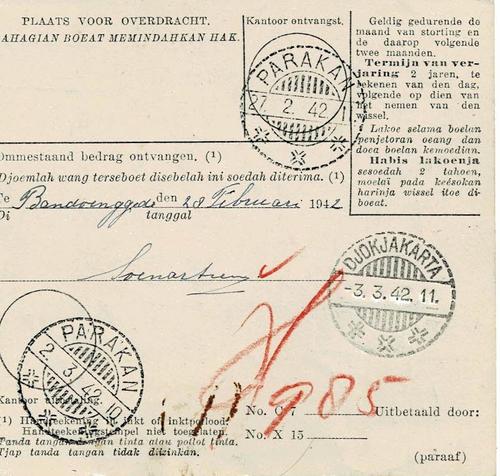 PLAATS VOOR OVERDRACHT.
AHAGIAN BOEAT MEMINDAHKAN HAK.
Kantoor ontvangst.
PARAKAN
27. 2. 42
Geldig gedurende de
maand van storting en
de daarop volgende
twee maanden.
Termijn van ver-
jaring 2 jaren, te
rekenen van den dag,
volgende op dien van
het nemen van den
wissel.
Lakoe selama boelan
penjetoran oeang dan
doea boelan kemoedian.
Habis lakoenja
sesoedah 2 tahoen,
moelaï pada keësokan
harinja wissel itoe di-
boeat.
Ommestaand bedrag ontvangen. (1)
Djoemlah wang terseboet disebelah ini soedah diterima. (1)
Te Bandoenggede den 28 Februari 1942
Di tanggal
DJOKJAKARTA
-3. 3. 42. 11.
PARAKAN
2. 3. 42 10
Kantoor uitbetaling.
(1) Handteekening in inkt of inktpotlood.
Handteekeningstempel niet toegelaten.
Tanda tangan dengan tinta atau potlot tinta.
Tjap tanda tangan tidak diizinkan.
985
No. C 7 Uitbetaald door:
No. X 15
(paraaf)